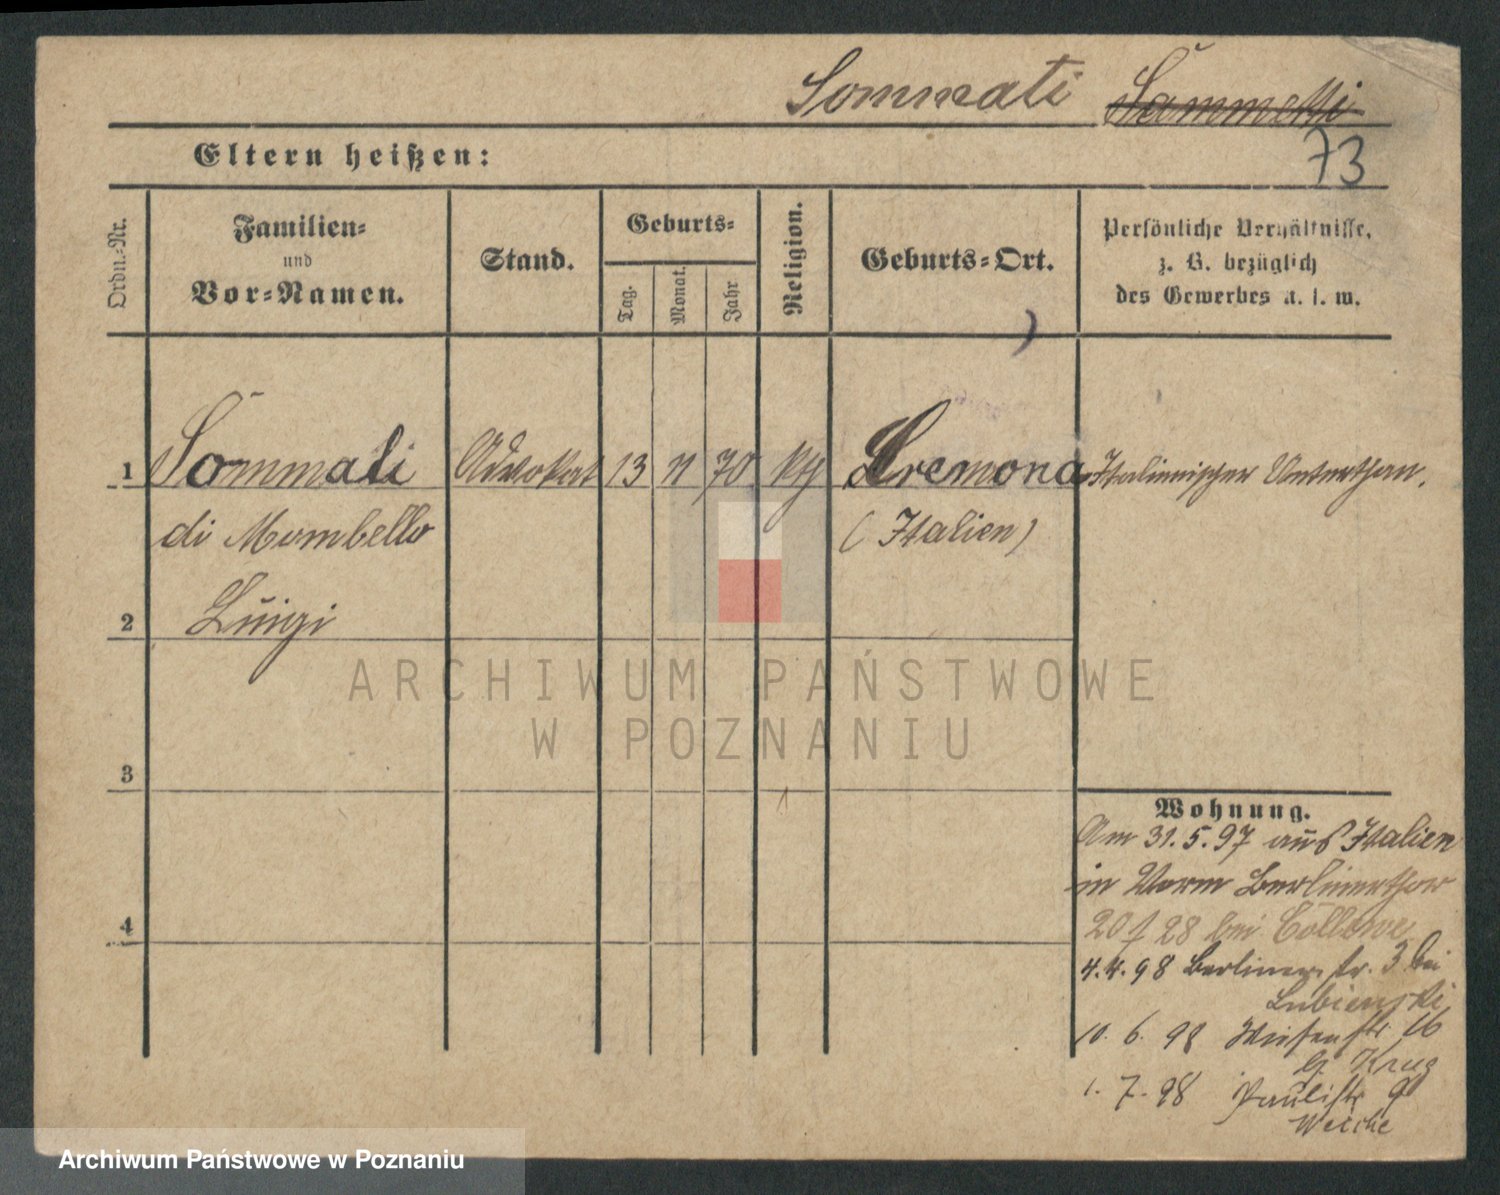 Sommati Sammetti
73
Eltern heißen:
Ordn.-Nr.
Familien-
und
Vor-Namen.
Stand.
Geburts-
Tag.
Monat.
Jahr
Religion.
Geburts-Ort.
Persönliche Verhältnisse,
z. B. bezüglich
des Gewerbes u. s. w.
1 Sommati Advokat 13 11 70 Cremona Italienischer Unterthan.
di Mombello (Italien)
2 Luigi
3
4
Wohnung.
Am 31.5.97 aus Italien
in Vorm Berlinerthor
20/28 bei
4.4.98 Berlinerstr. 3 bei
Lubienski
10. 6. 98 Wiesenstr 16
b. Krug
1. 7. 98 Paulistr 9
ARCHIWUM PAŃSTWOWE
W POZNANIU
Archiwum Państwowe w Poznaniu